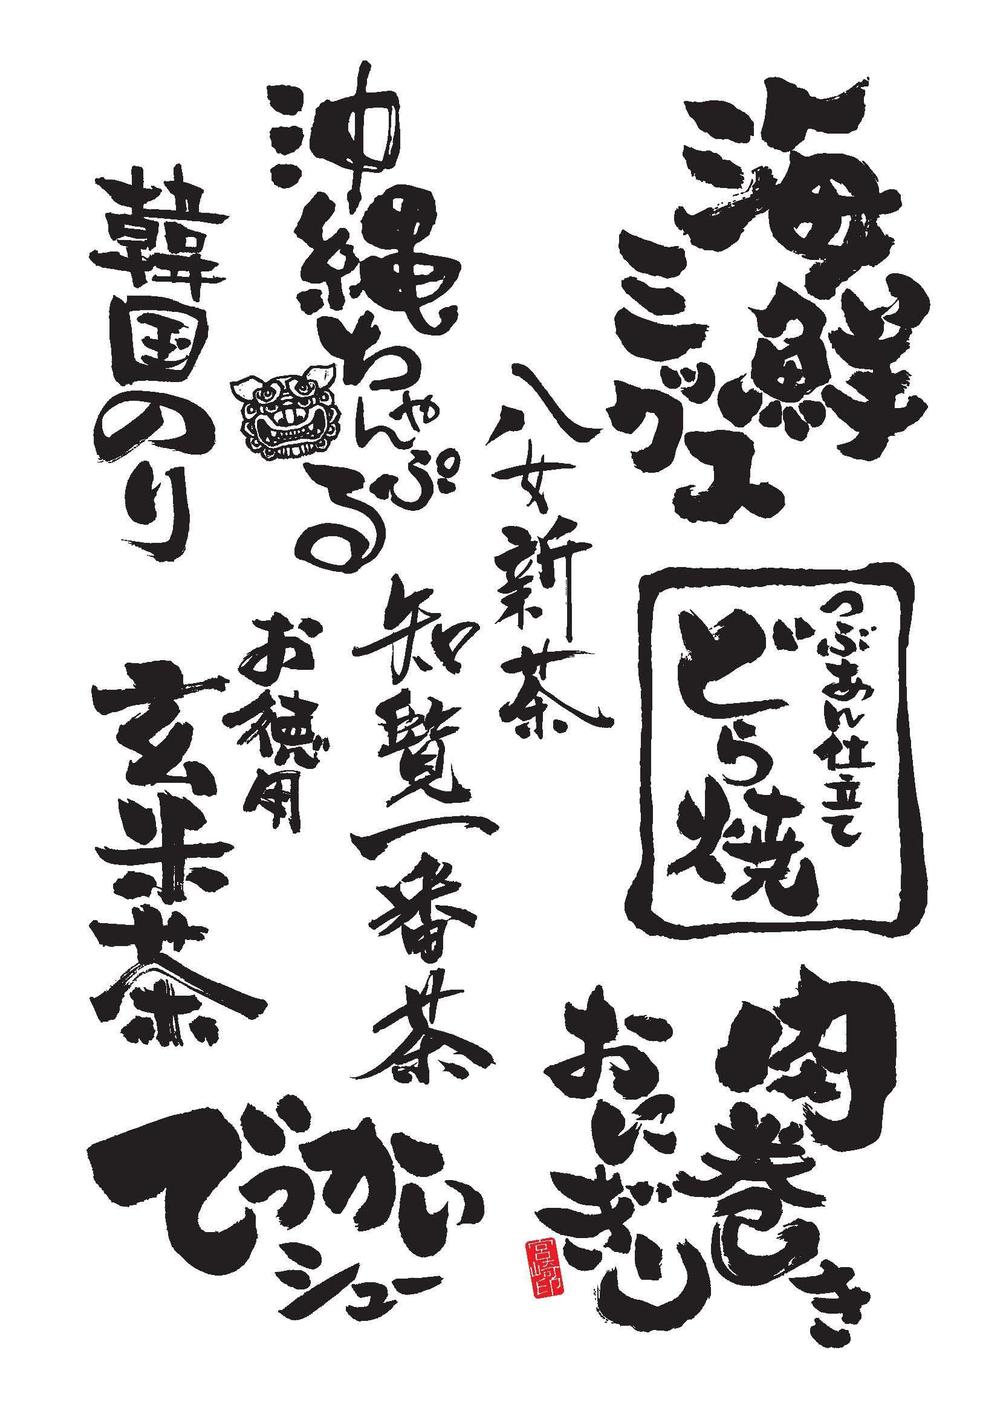 海鮮
ミックス
つぶあん仕立て
どら焼
肉巻き
おにぎり
宮崎印
八女新茶
知覧一番茶
沖縄ちゃんぷる
韓国のり
お徳用
玄米茶
でっかい
シュー